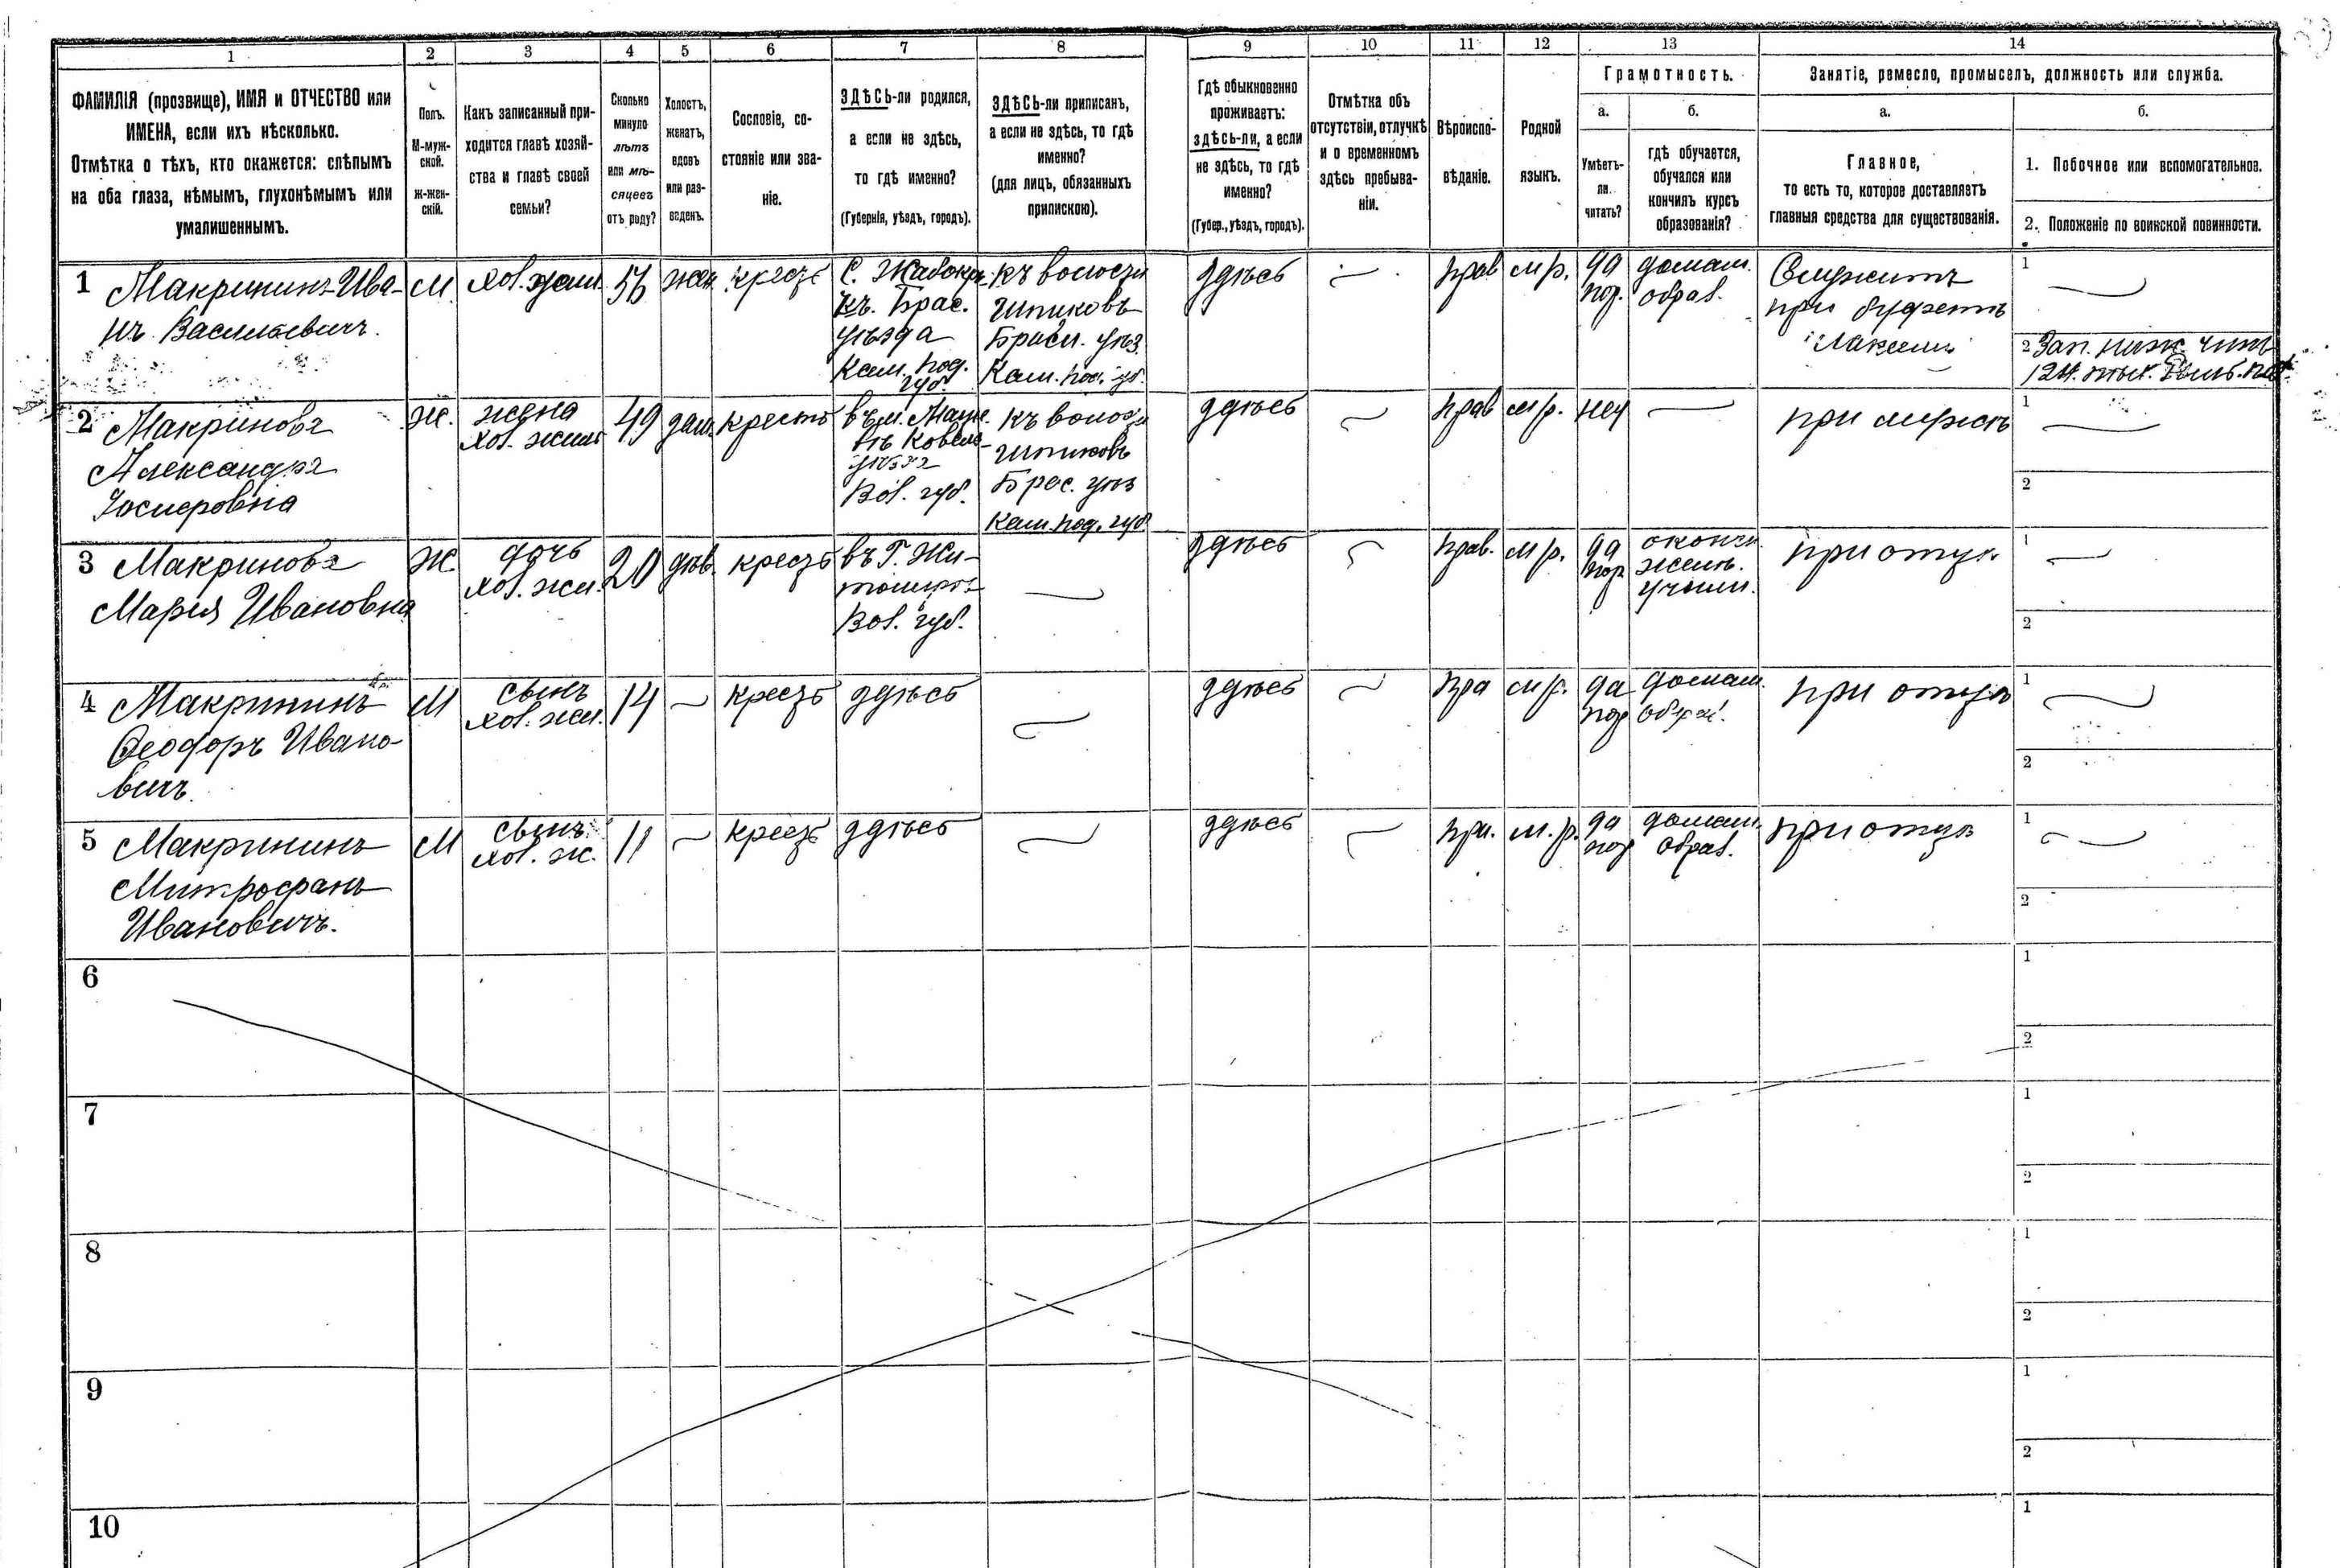 1
2
3
4
5
6
7
8
9
10
11
12
13
14
ФАМИЛІЯ (прозвище), ИМЯ и ОТЧЕСТВО или
ИМЕНА, если ихъ нѣсколько.
Отмѣтка о тѣхъ, кто окажется: слѣпымъ
на оба глаза, нѣмымъ, глухонѣмымъ или
умалишеннымъ.
Полъ.
М-муж-
ской.
Ж-жен-
скій.
Какъ записанный при-
ходится главѣ хозяй-
ства и главѣ своей
семьи?
Сколько
минуло
лѣтъ
или мѣ-
сяцевъ
отъ роду?
Холостъ,
женатъ,
вдовъ
или раз-
веденъ.
Сословіе, со-
стояніе или зва-
ніе.
ЗДѢСЬ-ли родился,
а если не здѣсь,
то гдѣ именно?
(Губернія, уѣздъ, городъ).
ЗДѢСЬ-ли приписан,
а если не здѣсь, то гдѣ
именно?
(для лицъ, обязанныхъ
припискою).
Гдѣ обыкновенно
проживаетъ:
здѣсь-ли, а если
не здѣсь, то гдѣ
именно?
(Губер., уѣздъ, городъ).
Отмѣтка объ
отсутствіи, отлучкѣ
и о временномъ
здѣсь пребыва-
ніи.
Вѣроиспо-
вѣданіе.
Родной
языкъ.
Грамотность.
а.
Умѣетъ-
ли
читать?
б.
гдѣ обучается,
обучался или
кончилъ курсъ
образованія?
Занятіе, ремесло, промыселъ, должность или служба.
а.
Главное,
то есть то, которое доставляетъ
главныя средства для существованія.
б.
1. Побочное или вспомогательное.
2. Положеніе по воинской повинности.
1
Макрининъ Ива-
нъ Васильевичъ.
М
хоз.
56
жен
С.
Брас.
уѣзда
Кам. под.
губ.
къ волости
Шпиковъ
Брасл. уѣз.
Кам. под. губ.
здѣсь
прав
м р.
да
домаш.
образ.
Служитъ
при буфетѣ
1
2 Зап. ниж. чинъ
2
Макринова
Александра
Ж.
жена
хоз.
49
крестъ
уѣзда
Вол. губ.
къ волости
Шпиковъ
Брас. уѣз
Кам. под. губ
здѣсь
прав
м/р.
нет
при мужѣ
1
2
3
Макринова
Мария Ивановна
Ж
дочь
20
дѣв.
въ Г. Жи-
томирѣ
Вол. губ.
здѣсь
прав.
м/р.
да
оконч.
женс.
учил.
при отцѣ
1
2
4
Макрининъ
Феодоръ Ивано-
вичъ
М
сынъ
14
здѣсь
здѣсь
пра
м/р.
да
домаш.
образ.
при отцѣ
1
2
5
Макрининъ
Митрофанъ
Ивановичъ.
М
сынъ
хоз. ж.
11
здѣсь
здѣсь
пра.
м. р.
да
домаш.
образ.
при отцѣ
1
2
6
1
2
7
1
2
8
1
2
9
1
2
10
1